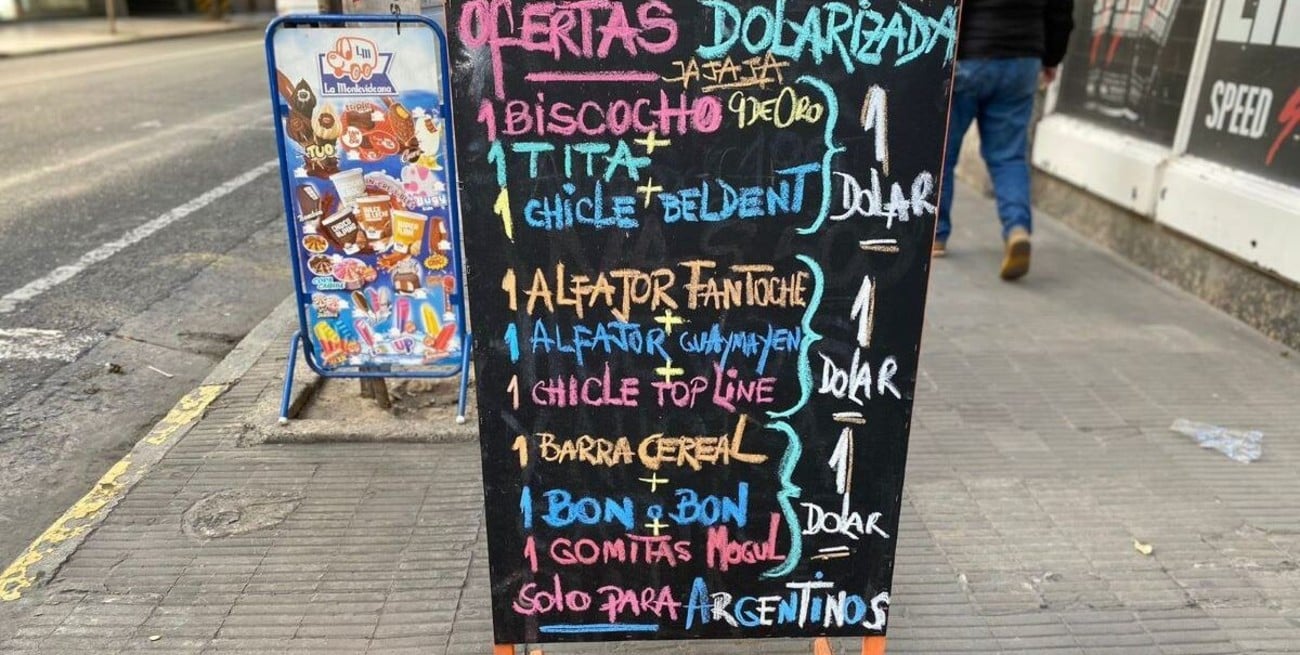 OFERTAS DOLARIZADA
JAJAJA
1 BISCOCHO 9 DE ORO
+
1 TITA
+
1 CHICLE BELDENT
1 DOLAR
1 ALFAJOR FANTOCHE
+
1 ALFAJOR GUAYMAYEN
+
1 CHICLE TOP LINE
1 DOLAR
1 BARRA CEREAL
+
1 BON o BON
+
1 GOMITAS MOGUL
1 DOLAR
SOLO PARA ARGENTINOS
LM
La Montevideana
TUO
UP
SPEED